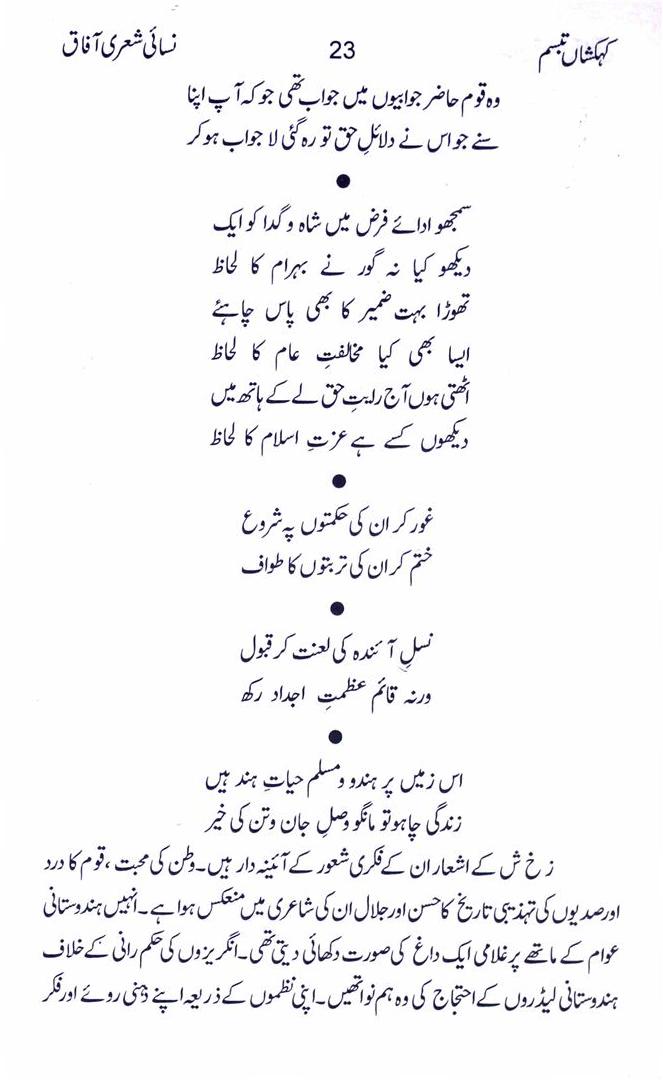 کہکشاں تبسم 23 نسائی شعری آفاق
وہ قوم حاضر جوابیوں میں جواب تھی جو کہ آپ اپنا
سنے جو اس نے دلائلِ حق تو رہ گئی لا جواب ہوکر
●
سمجھو ادائے فرض میں شاہ و گدا کو ایک
دیکھو کیا نہ گور نے بہرام کا لحاظ
تھوڑا بہت ضمیر کا بھی پاس چاہئے
ایسا بھی کیا مخالفتِ عام کا لحاظ
اٹھتی ہوں آج رایتِ حق لے کے ہاتھ میں
دیکھوں کسے ہے عزتِ اسلام کا لحاظ
●
غور کر ان کی حکمتوں پہ شروع
ختم کر ان کی تربتوں کا طواف
●
نسلِ آئندہ کی لعنت کر قبول
ورنہ قائم عظمتِ اجداد رکھ
●
اس زمیں پر ہندو و مسلم حیاتِ ہند ہیں
زندگی چاہو تو مانگو وصلِ جان و تن کی خیر
ز خ ش کے اشعار ان کے فکری شعور کے آئینہ دار ہیں۔ وطن کی محبت، قوم کا درد
اور صدیوں کی تہذیبی تاریخ کا حسن اور جلال ان کی شاعری میں منعکس ہوا ہے۔ انہیں ہندوستانی
عوام کے ماتھے پر غلامی ایک داغ کی صورت دکھائی دیتی تھی۔ انگریزوں کی حکم رانی کے خلاف
ہندوستانی لیڈروں کے احتجاج کی وہ ہم نوا تھیں۔ اپنی نظموں کے ذریعہ اپنے ذہنی رویے اور فکر